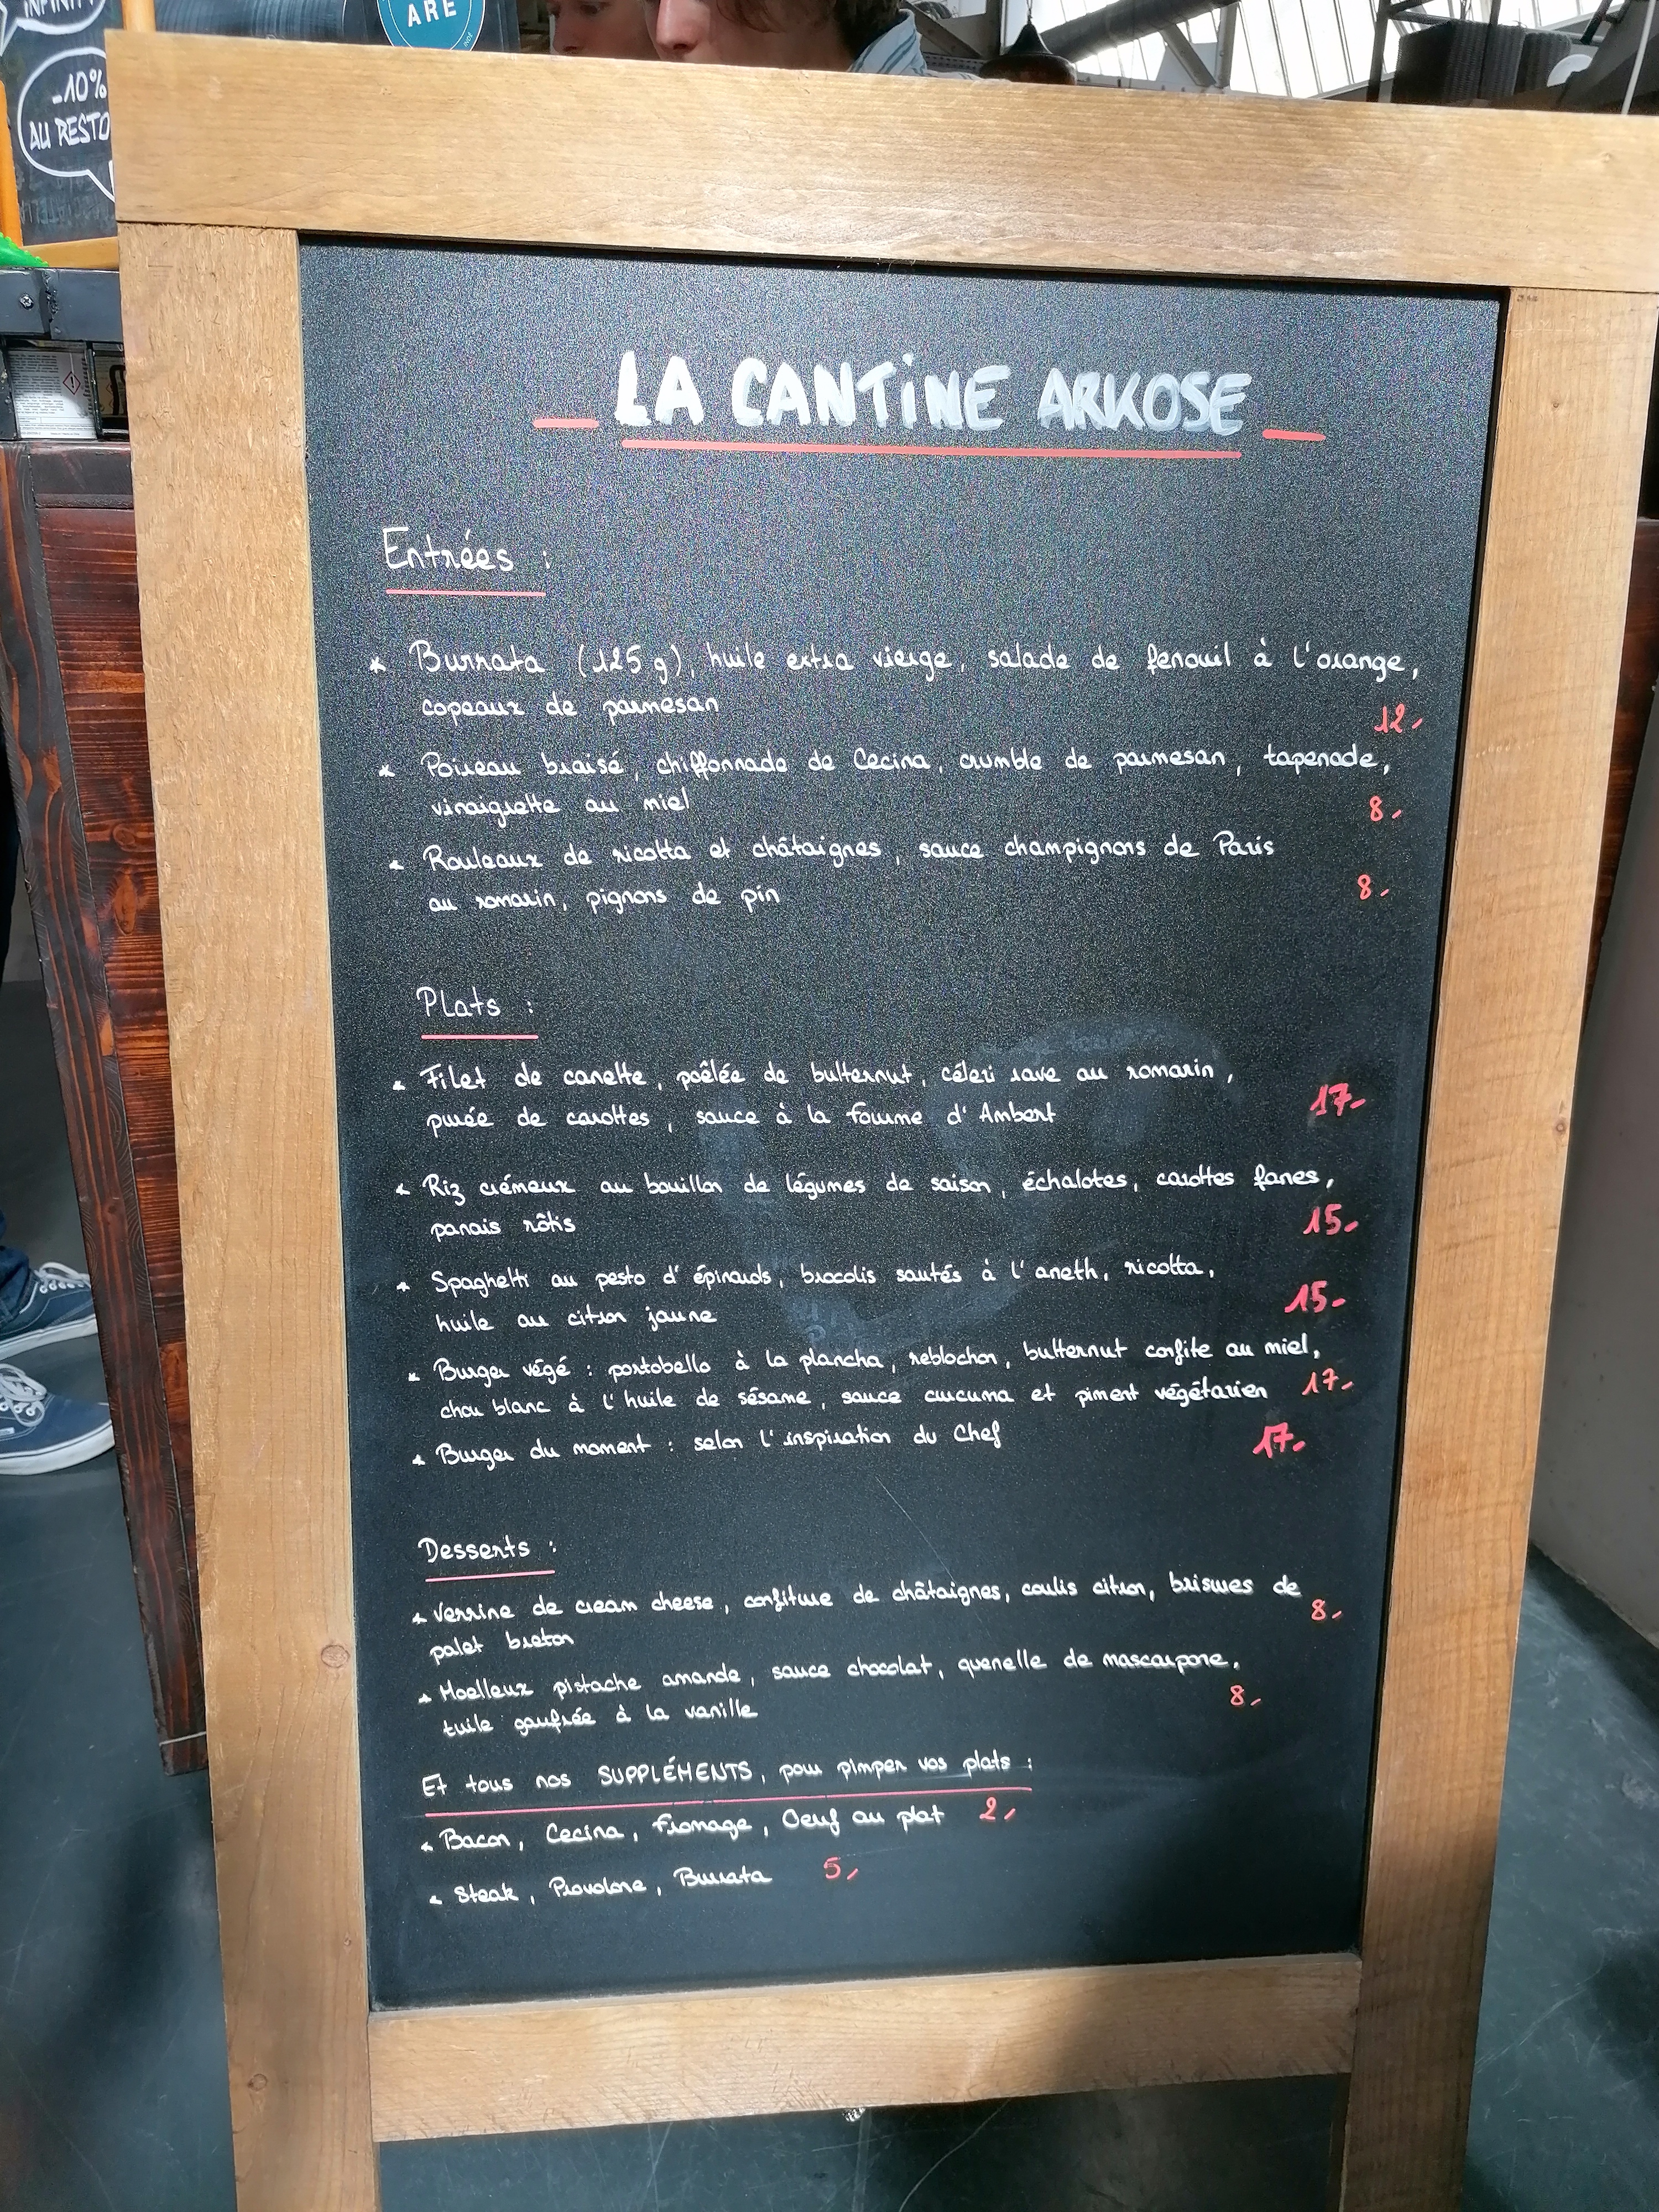 INFINITY
-10%
AU RESTO
ARE
LA CANTINE ARKOSE
Entrées :
* Burrata (125 g), huile extra vierge, salade de fenouil à l'orange,
copeaux de parmesan 12,
* Poireau braisé, chiffonnade de Cecina, crumble de parmesan, tapenade,
vinaigrette au miel 8,
* Rouleaux de ricotta et châtaignes, sauce champignons de Paris
au romarin, pignons de pin 8,
Plats :
* Filet de canette, poêlée de butternut, céleri rave au romarin,
purée de carottes, sauce à la fourme d'Ambert 17-
* Riz crémeux au bouillon de légumes de saison, échalotes, carottes fanes,
panais rôtis 15-
* Spaghetti au pesto d'épinards, brocolis sautés à l'aneth, ricotta,
huile au citron jaune 15-
* Burger végé : portobello à la plancha, reblochon, butternut confite au miel,
chou blanc à l'huile de sésame, sauce curcuma et piment végétarien 17-
* Burger du moment : selon l'inspiration du Chef 17-
Desserts :
* Verrine de cream cheese, confiture de châtaignes, coulis citron, brisures de
palet breton 8,
* Moelleux pistache amande, sauce chocolat, quenelle de mascarpone,
tuile gaufrée à la vanille 8,
Et tous nos SUPPLÉMENTS, pour pimper vos plats :
* Bacon, Cecina, Fromage, Oeuf au plat 2,
* Steak, Provolone, Burrata 5,